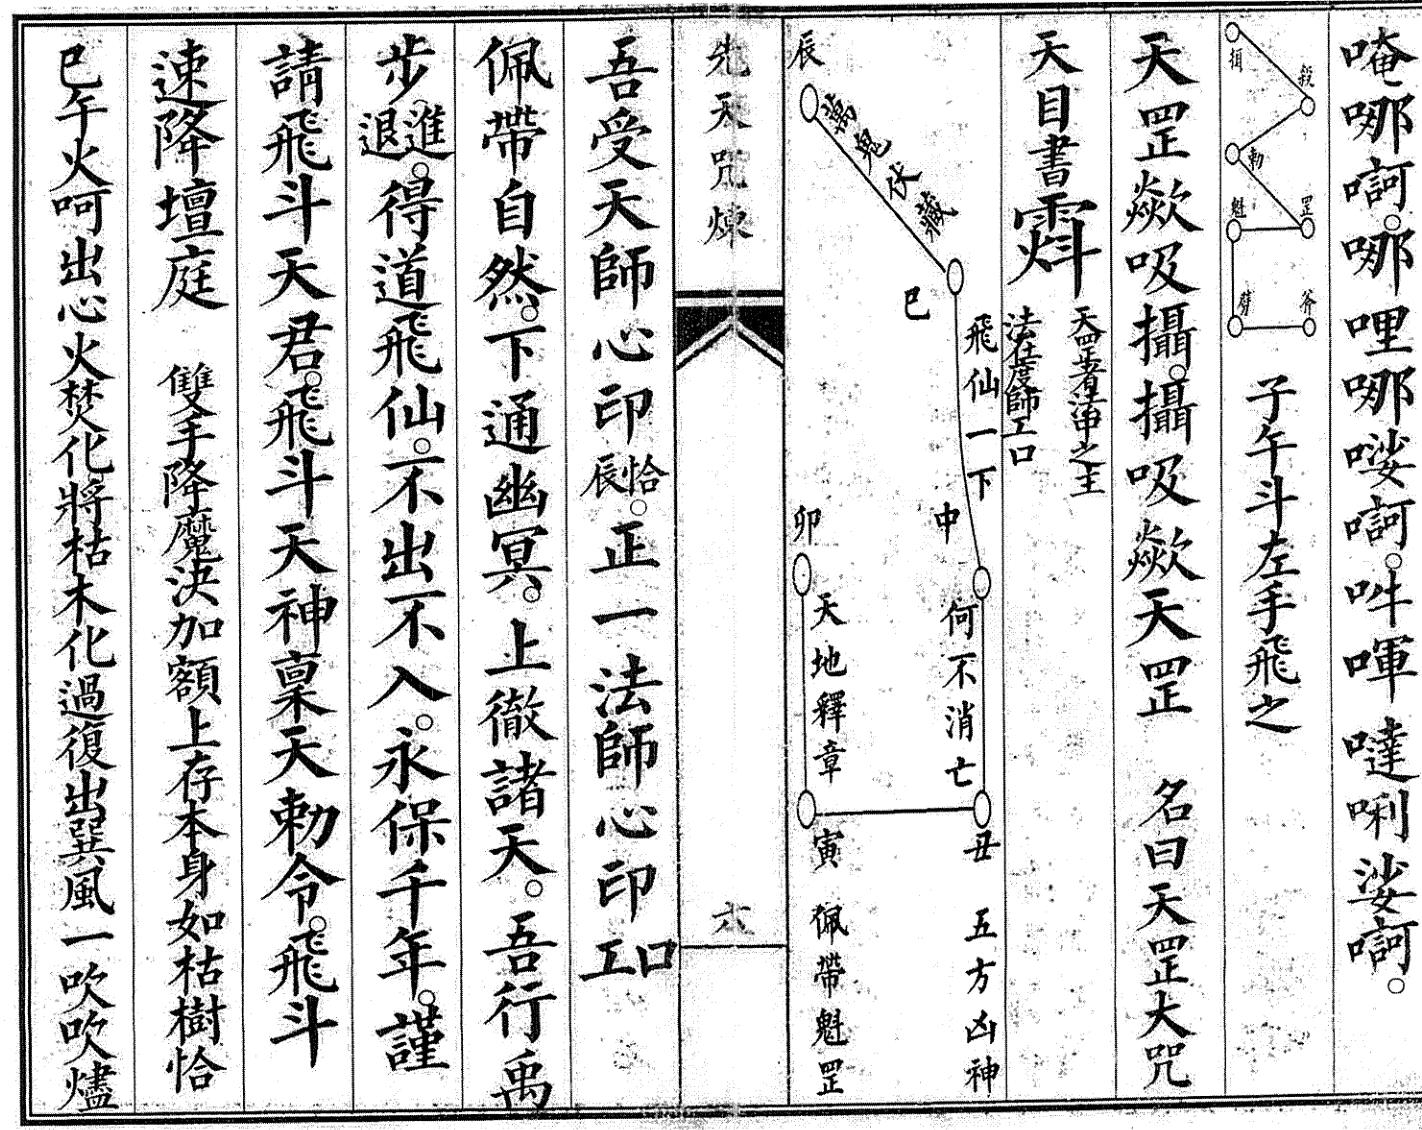 唵哪㖿。哪哩哪㗿㖿。吽㖶噠唎娑㖿。
損 殺 勅 罡 魁 劈 斧
子午斗左手飛之
天罡歘吸攝。攝吸歘天罡 名曰天罡大咒
天目書
法在度師工口
辰 萬鬼伏藏
巳 飛仙一下
申 何不消亡
丑 五方凶神
卯 天地釋章
寅 佩帶魁罡
先天咒煉
六
吾受天師心印恰辰。正一法師心印工口
佩帶自然。下通幽冥。上徹諸天。吾行禹
步進退。得道飛仙。不出不入。永保千年。謹
請飛斗天君。飛斗天神稟天勅令。飛斗
速降壇庭 雙手降魔決加額上存本身如枯樹恰
巳午火呵出心火焚化將枯木化過復出巽風一吹吹燼